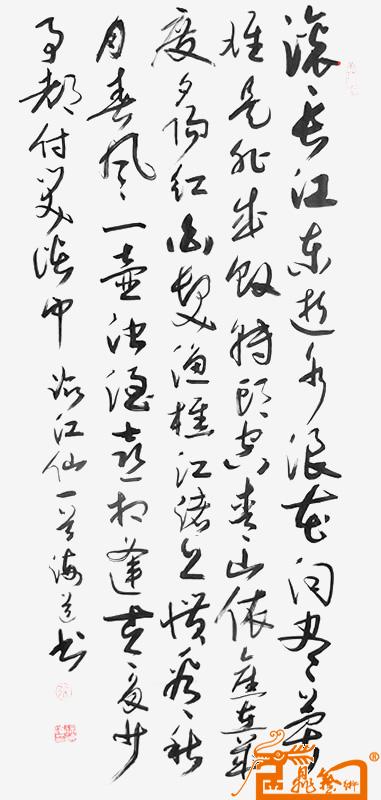 滚滚长江东逝水浪花淘尽英
雄是非成败转头空青山依旧在几
度夕阳红白发渔樵江渚上惯看秋
月春风一壶浊酒喜相逢古今多少
事都付笑谈中 临江仙一首海道书